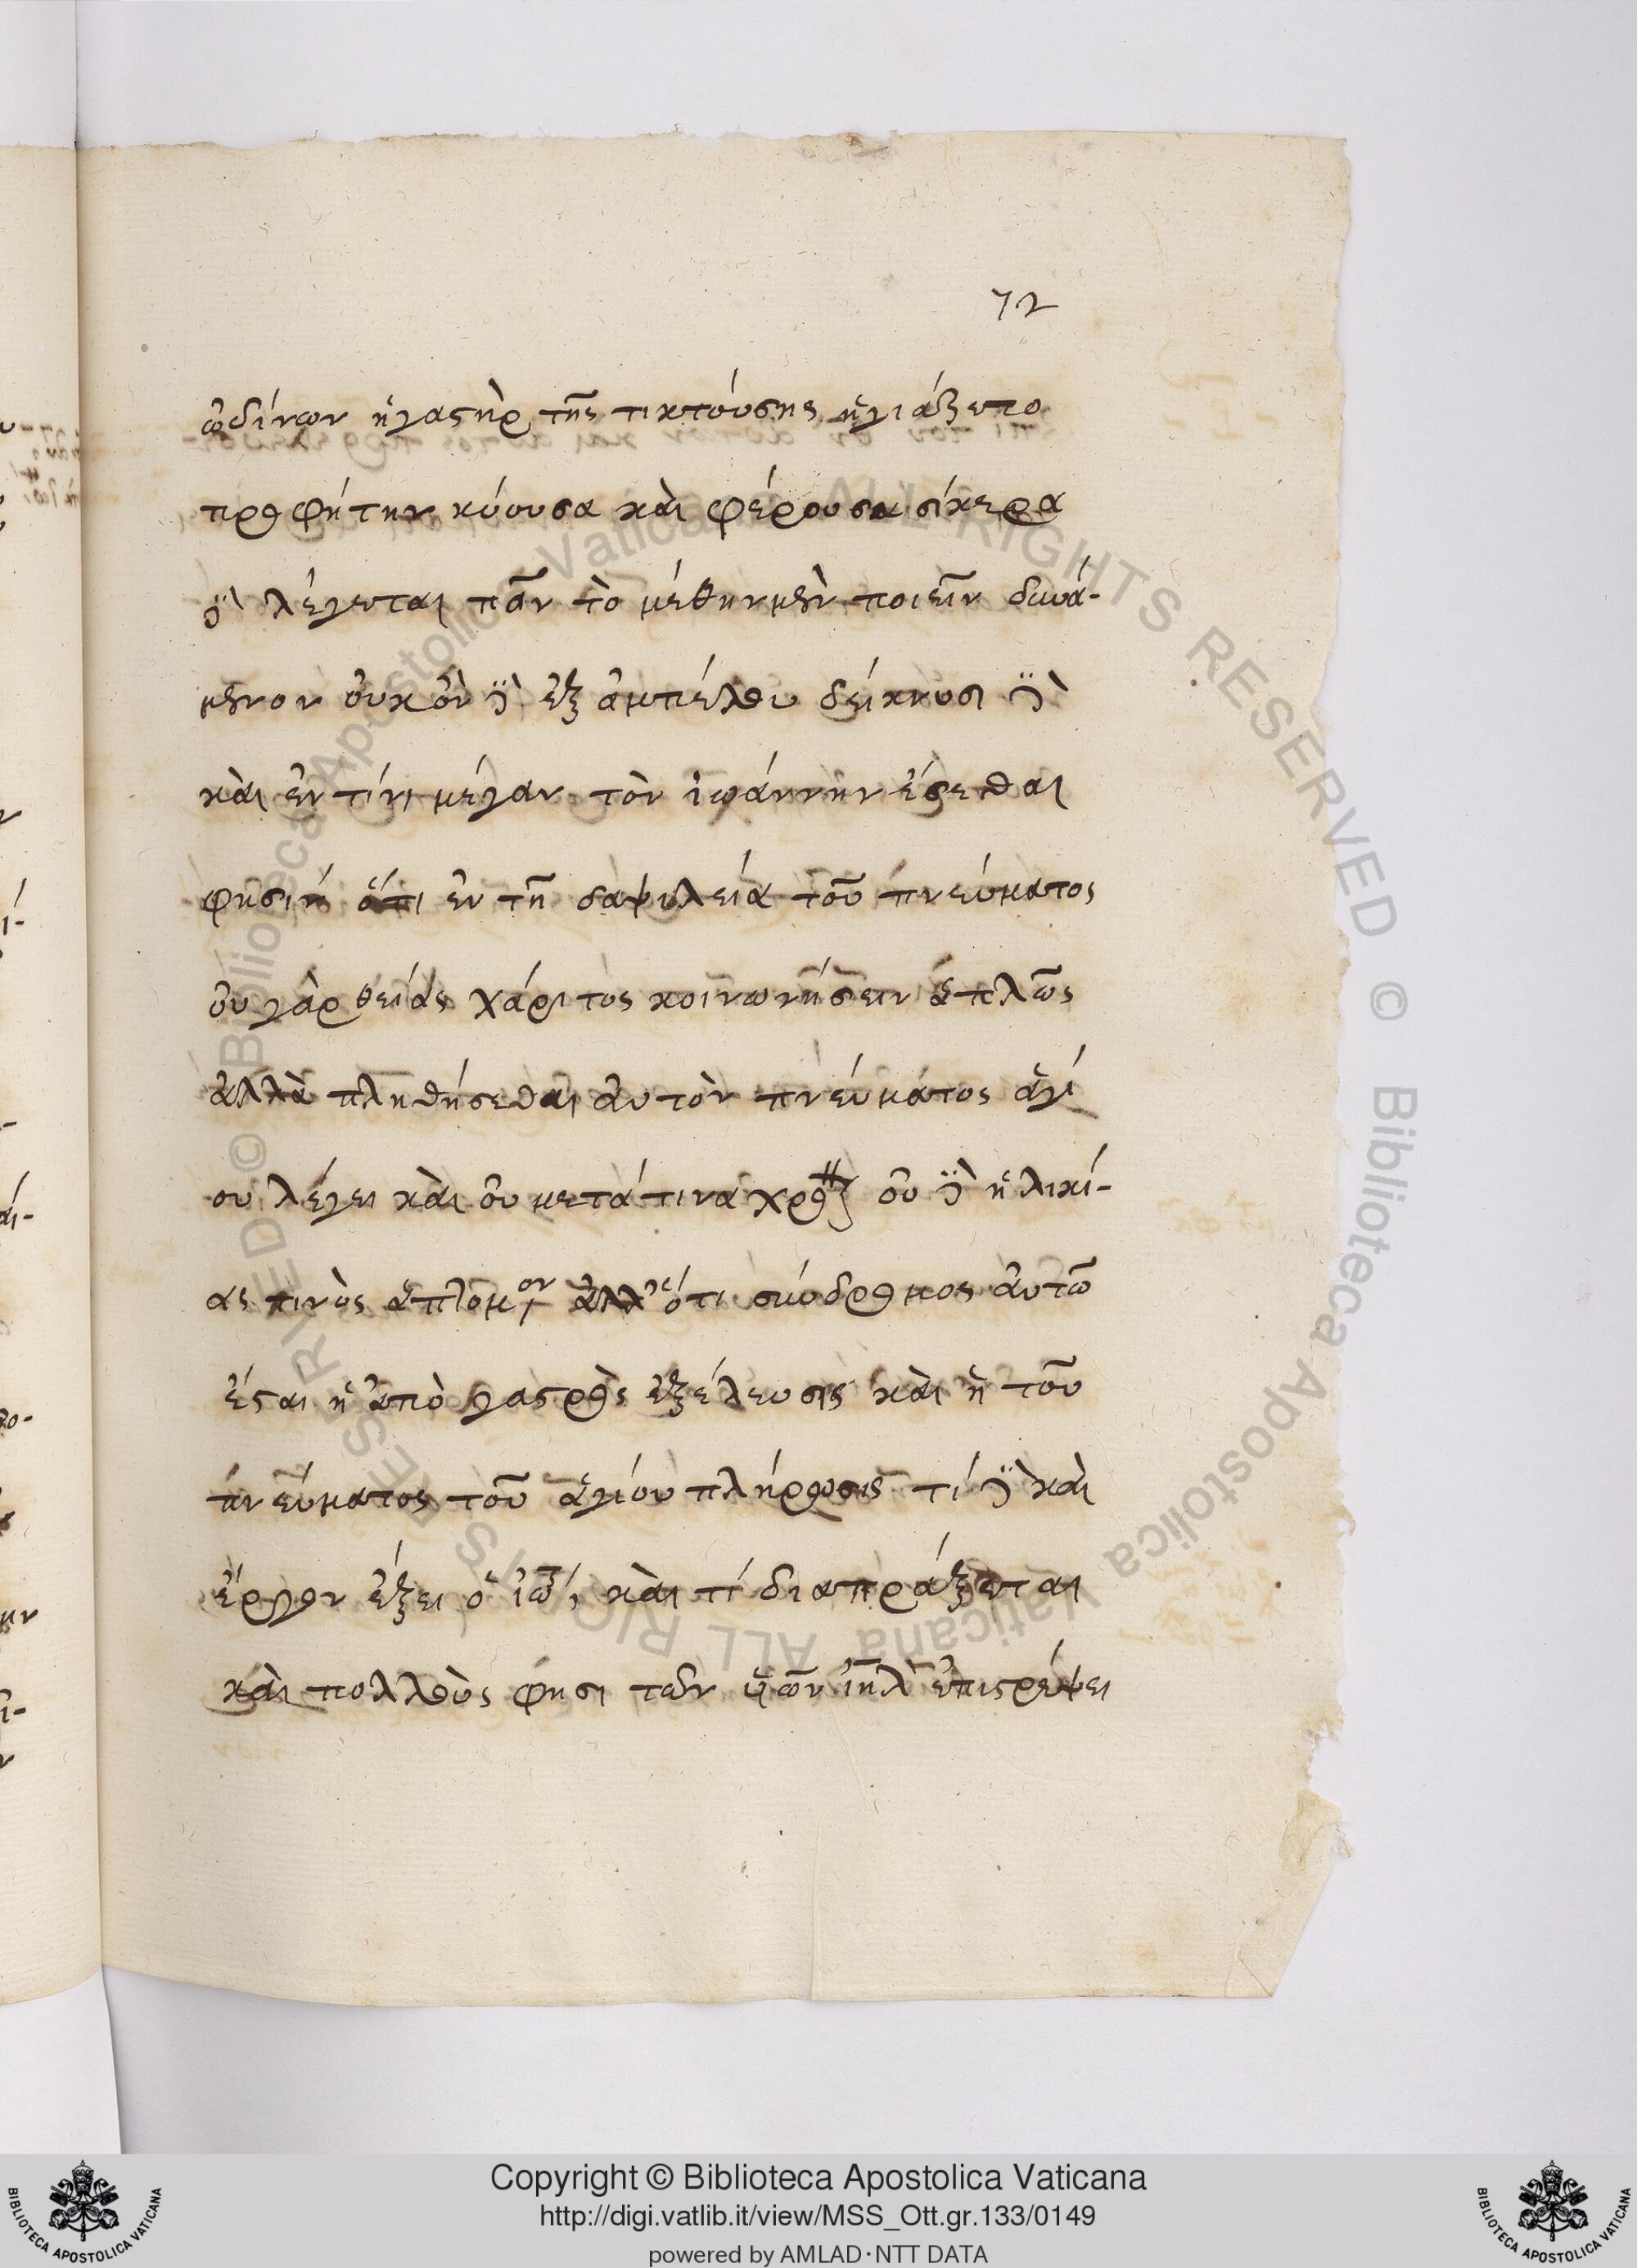 72
ὠδίνων ἡ γαστὴρ τῆς τικτούσης ἡγιάζετο
προφήτην κύουσα καὶ φέρουσα σίκερα
δὲ λέγεται πᾶν τὸ μέθην μὲν ποιεῖν δυνά-
μενον οὐκ ὂν δὲ ἐξ ἀμπέλου δείκνυσι δὲ
καὶ ἐν τίνι μέγαν τὸν ἰωάννην ἔσεσθαι
φησὶν ὅτι ἐν τῇ δαψιλείᾳ τοῦ πνεύματος
οὐ γὰρ θείας χάριτος κοινωνήσειν ἁπλῶς
ἀλλὰ πλησθήσεσθαι αὐτὸν πνεύματος ἁγί
ου λέγει καὶ οὐ μετά τινα χρο οὐ δὲ ἡλικί-
ας τινὸς ἁπτομον ἀλλ' ὅτι σύνδρομος αὐτῷ
ἔσται ἡ ἀπὸ γαστρὸς ἐξέλευσις καὶ ἡ τοῦ
πνεύματος τοῦ ἁγίου πλήρωσις τί δὲ καὶ
ἔργον ἕξει ὁ ἰω, καὶ τί διαπράξεται
καὶ πολλοὺς φησι τῶν ὑῶν ἰηλ ἐπιστρέψει
Copyright © Biblioteca Apostolica Vaticana
http://digi.vatlib.it/view/MSS_Ott.gr.133/0149
powered by AMLAD·NTT DATA
BIBLIOTECA APOSTOLICA VATICANA
BIBLIOTECA APOSTOLICA VATICANA
© Biblioteca Apostolica Vaticana ALL RIGHTS RESERVED © Biblioteca Apostolica Vaticana ALL RIGHTS RESERVED